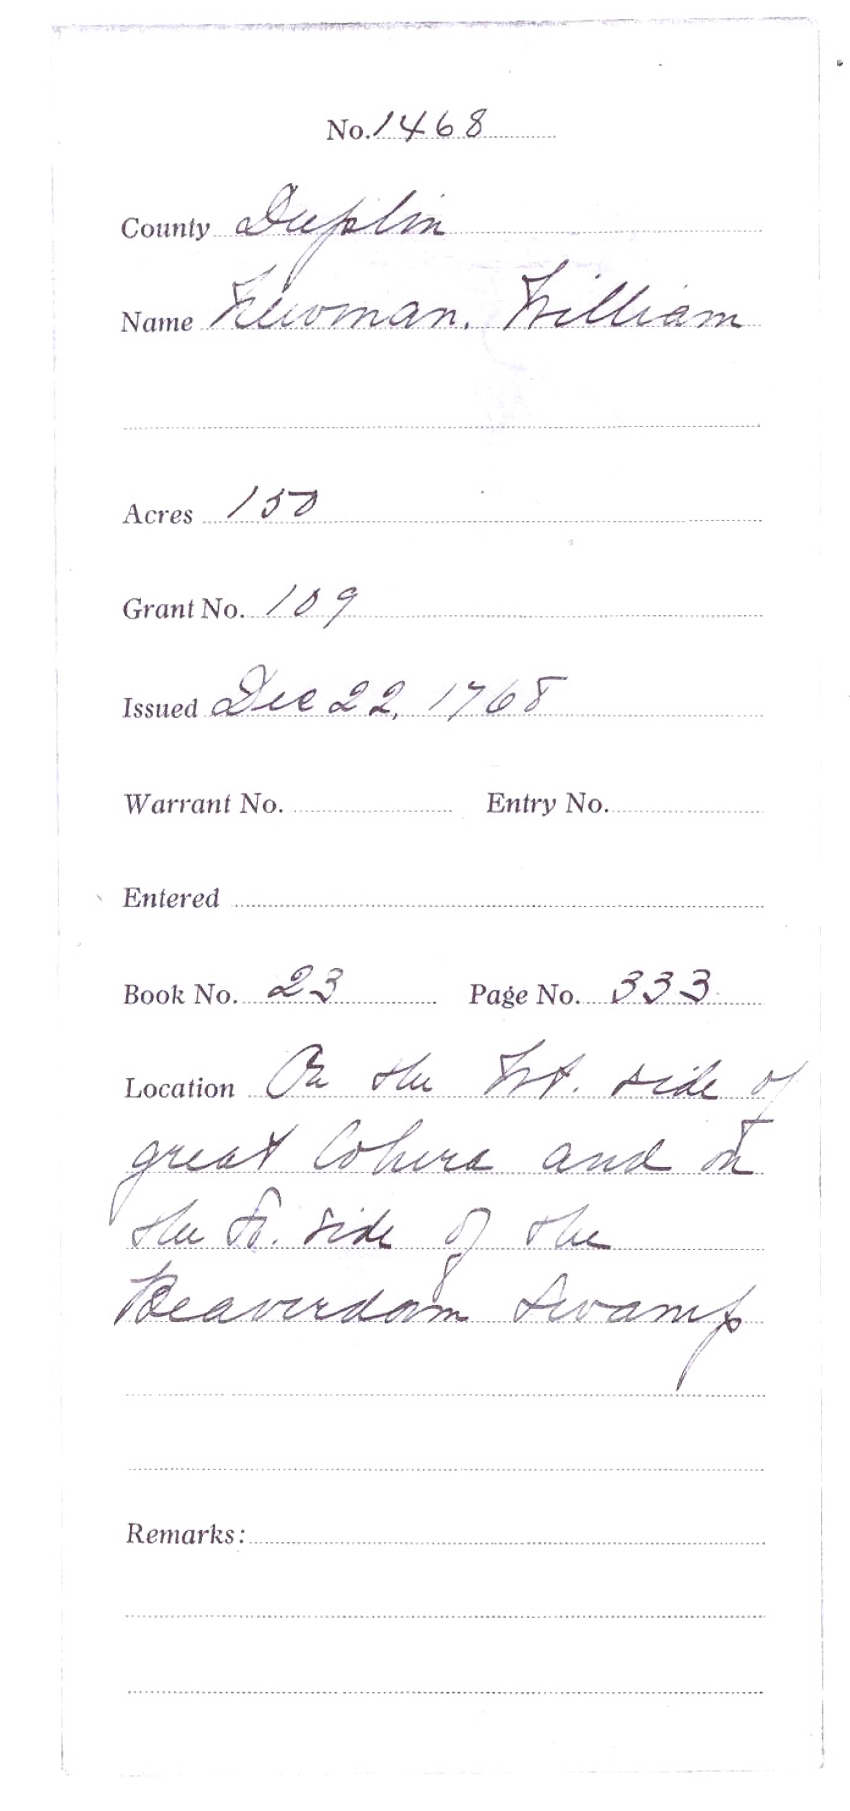 No. 1468
County Duplin
Name Newman, William
Acres 150
Grant No. 109
Issued Dec 22, 1768
Warrant No. Entry No.
Entered
Book No. 23 Page No. 333
Location On the Wt. side of
great Cohera and on
the So. side of the
Beaverdam Swamp
Remarks: